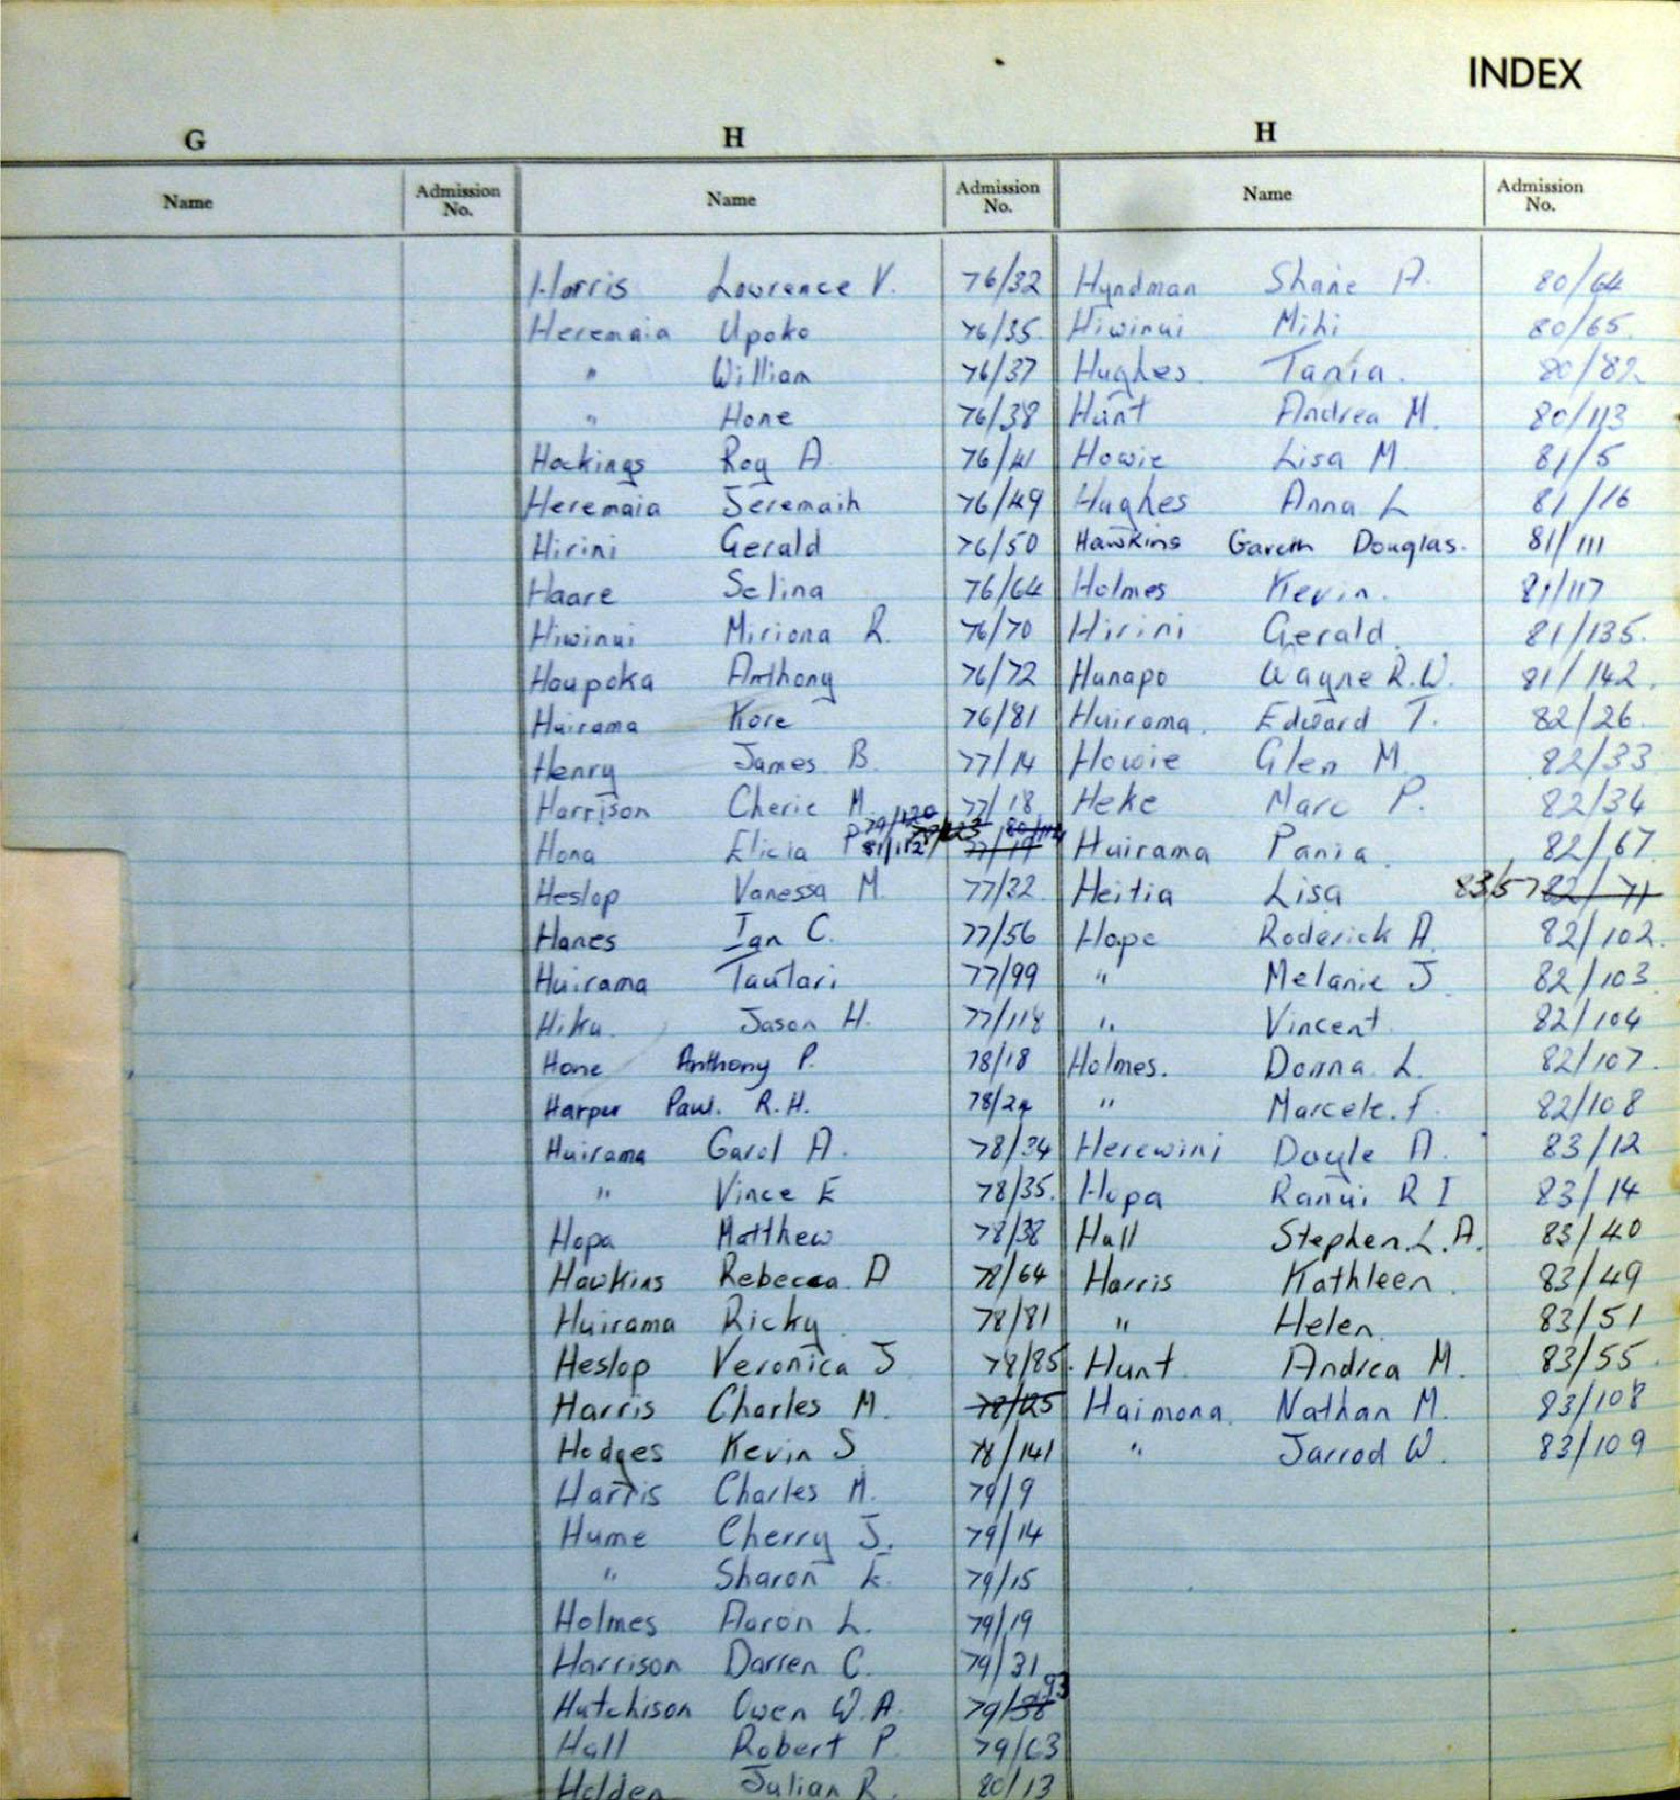 INDEX
G H H
Name Admission No. Name Admission No. Name Admission No.
Harris Lawrence V. 76/32
Heremaia Upoko 76/35
" William 76/37
" Hone 76/38
Hockings Roy A. 76/41
Heremaia Jeremaih 76/49
Hirini Gerald 76/50
Haare Selina 76/64
Hiwinui Miriona R. 76/70
Houpoka Anthony 76/72
Huirama Kore 76/81
Henry James B. 77/14
Harrison Cherie M. 77/18
Hona Elicia P 79/120 81/112 80/114 77/19
Heslop Vanessa M. 77/32
Hanes Ian C. 77/56
Huirama Tautari 77/99
Hiku Jason H. 77/118
Hone Anthony P. 78/18
Harper Paul R.H.
Huirama Carol A. 78/34
" Vince E 78/35
Hopa Matthew 78/38
Hawkins Rebecca D 78/64
Huirama Ricky 78/81
Heslop Veronica J 78/85
Harris Charles M. 78/125
Hodges Kevin S 78/141
Harris Charles M. 79/9
Hume Cherry J. 79/14
" Sharon E. 79/15
Holmes Aaron L. 79/19
Harrison Darren C. 79/31
Hutchison Owen W.A. 79/38 93
Hall Robert P. 79/63
Holden Julian R. 80/13
Hyndman Shane A. 80/64
Hiwinui Mihi 80/65
Hughes Tania. 80/82
Hunt Andrea M. 80/113
Howie Lisa M. 81/5
Hughes Anna L 81/16
Hawkins Gareth Douglas. 81/111
Holmes Kevin. 81/117
Hirini Gerald 81/135.
Hanapo Wayne R.W. 81/142.
Huirama. Edward T. 82/26
Howie Glen M 82/33
Heke Marc P. 82/34
Huirama Pania. 82/67
Heitia Lisa 83/57 82/71
Hape Roderick A. 82/102.
" Melanie J 82/103
" Vincent 82/104
Holmes. Donna L. 82/107.
" Marcele. F. 82/108
Herewini Doyle A. 83/12
Hopa Ranui R I 83/14
Hall Stephen.L.A. 83/40
Harris Kathleen 83/49
" Helen. 83/51
Hunt Andrea M. 83/55
Haimona. Nathan M. 83/108
" Jarrod W. 83/109